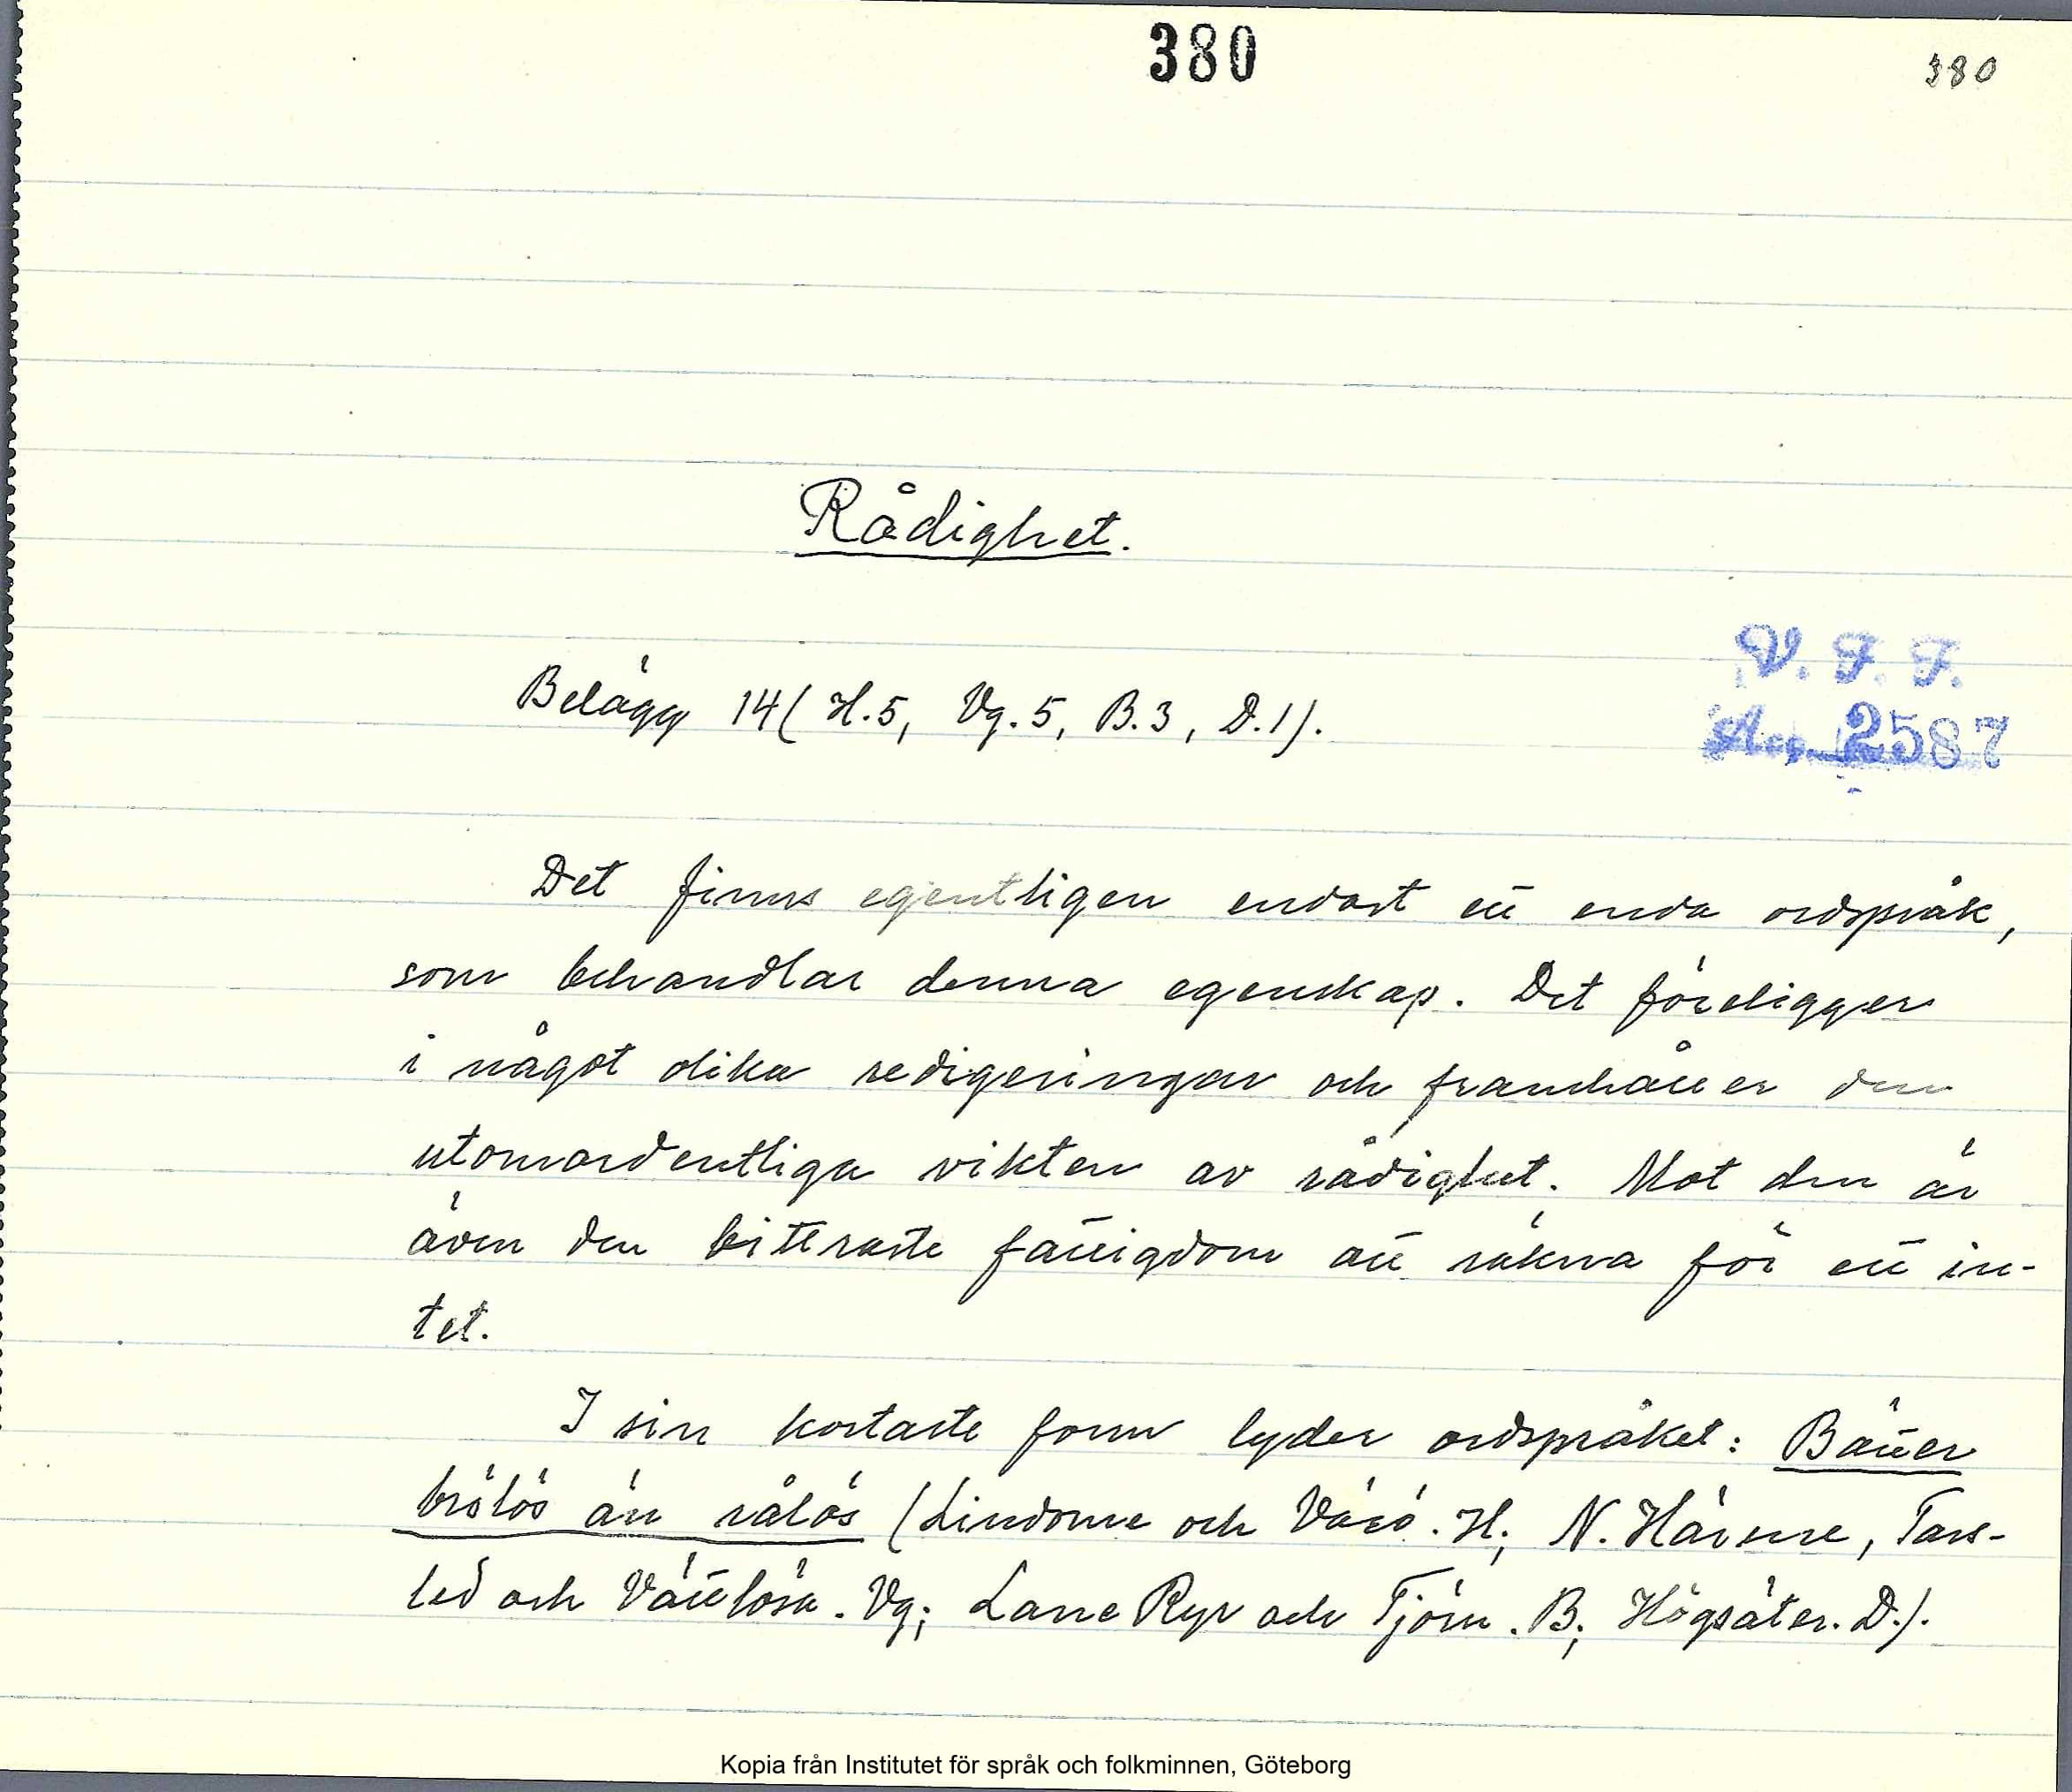 380
380
Rådighet.
V. F. F.
Belägg 14 (H.5, Vg.5, B.3, D.1).
Acc. 2587
Det finns egentligen endast ett enda ordspråk,
som behandlar denna egenskap. Det föreligger
i något olika redigeringar och framhåller den
utomordentliga vikten av rådighet. Mot den är
även den bittraste fattigdom att räkna för ett in-
tet.
I sin kortaste form lyder ordspråket: Bätter
brölös än rålös (Lindome och Värö. H; N. Härene, Tars-
led och Vättlösa. Vg; Lane Ryr och Tjörn. B; Högsäter. D.).
Kopia från Institutet för språk och folkminnen, Göteborg